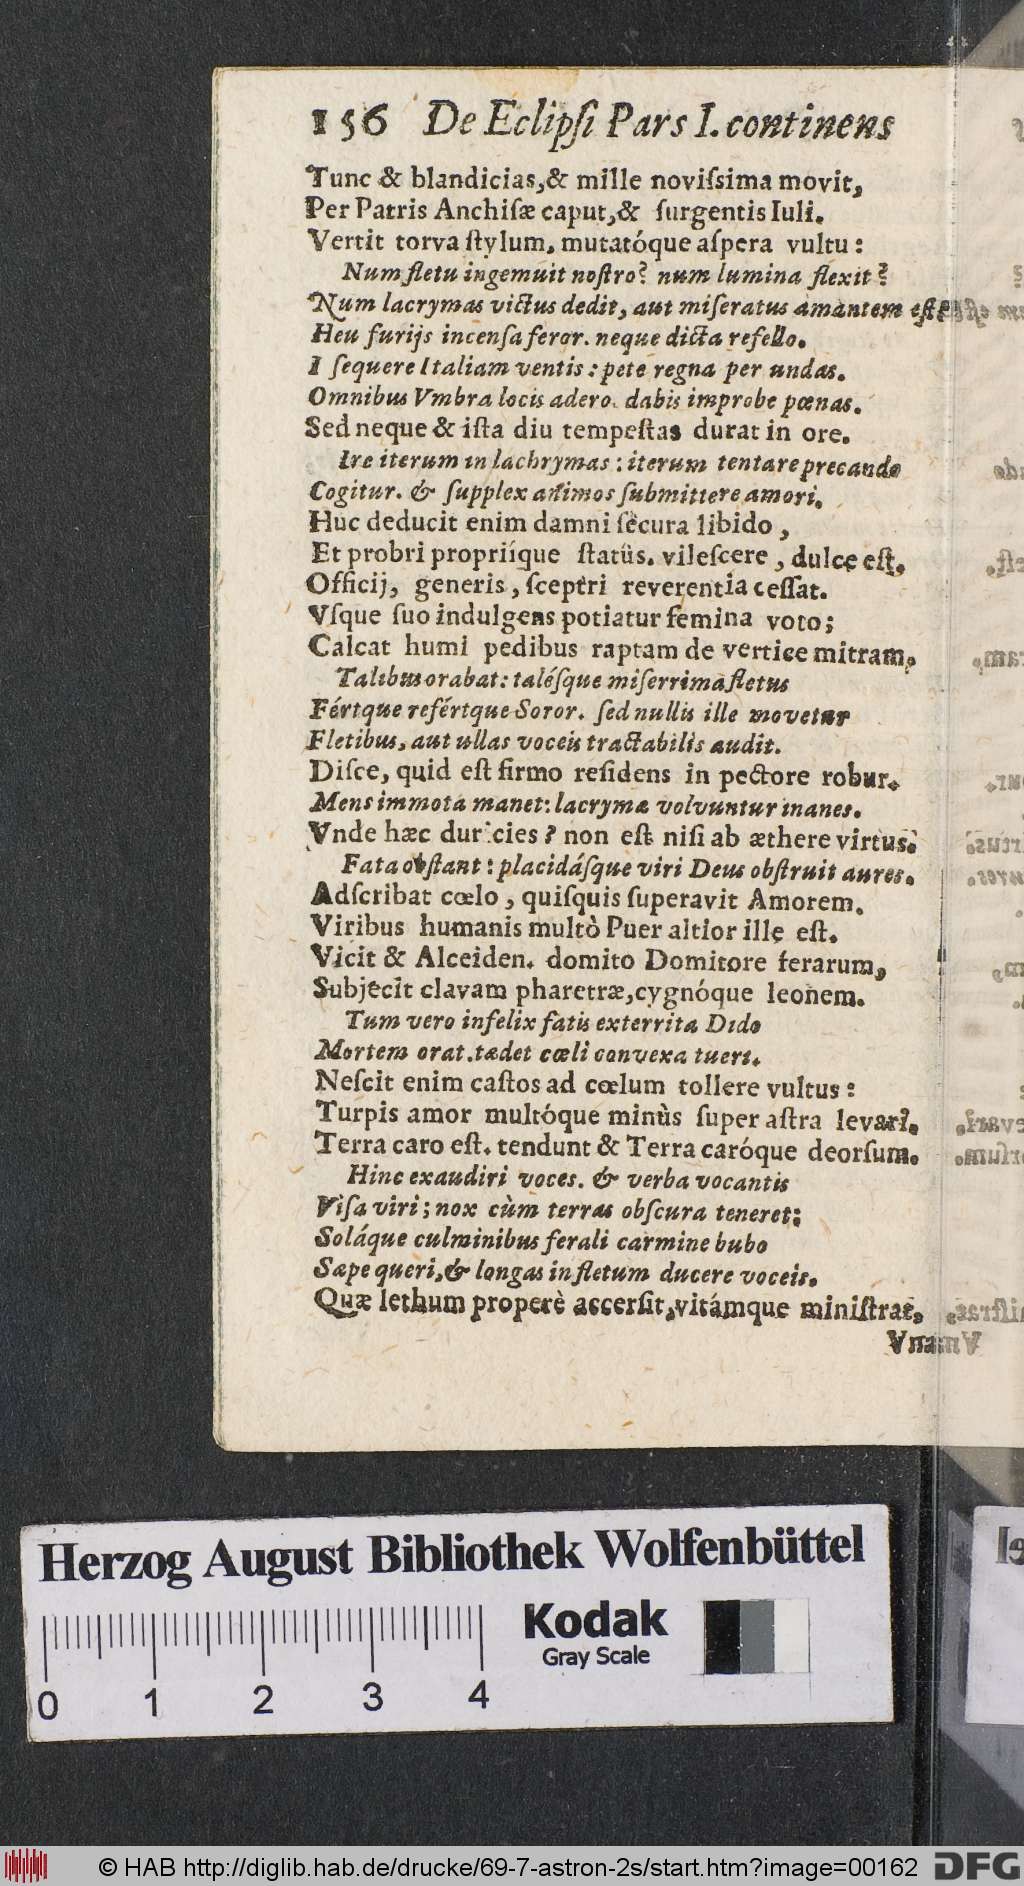 156 De Eclipſi Pars I. continens
Tunc & blandicias,& mille noviſsima movit,
Per Patris Anchiſæ caput,& ſurgentis Iuli.
Vertit torva ſtylum, mutatóque aſpera vultu:
Num fletu ingemuit noſtro? num lumina flexit?
Num lacrymas victus dedit, aut miſeratus amantem eſt?
Heu furijs incenſa feror. neque dicta refello.
I ſequere Italiam ventis: pete regna per undas.
Omnibus Vmbra locis adero. dabis improbe pœnas.
Sed neque & iſta diu tempeſtas durat in ore.
Ire iterum in lachrymas: iterum tentare precando
Cogitur. & ſupplex animos ſubmittere amori.
Huc deducit enim damni ſecura libido,
Et probri propriíque ſtatûs. vileſcere, dulce eſt.
Officij, generis, ſceptri reverentia ceſſat.
Vſque ſuo indulgens potiatur femina voto;
Calcat humi pedibus raptam de vertice mitram.
Talibus orabat: taléſque miſerrima fletus
Fértque refértque Soror. ſed nullis ille movetur
Fletibus, aut ullas voceis tractabilis audit.
Diſce, quid eſt firmo reſidens in pectore robur.
Mens immota manet: lacrymæ volvuntur inanes.
Vnde hæc duricies? non eſt niſi ab æthere virtus.
Fata obſtant: placidáſque viri Deus obſtruit aures.
Adſcribat cœlo, quiſquis ſuperavit Amorem.
Viribus humanis multò Puer altior ille eſt.
Vicit & Alceiden. domito Domitore ferarum,
Subjecit clavam pharetræ,cygnóque leonem.
Tum vero infelix fatis exterrita Dido
Mortem orat.tædet cœli convexa tueri.
Neſcit enim caſtos ad cœlum tollere vultus:
Turpis amor multóque minùs ſuper aſtra levari.
Terra caro eſt. tendunt & Terra caróque deorſum.
Hinc exaudiri voces. & verba vocantis
Viſa viri; nox cùm terras obſcura teneret:
Soláque culminibus ferali carmine bubo
Sæpe queri,& longas in fletum ducere voceis.
Quæ lethum properè accerſit,vitámque miniſtrat,
Vna
Herzog August Bibliothek Wolfenbüttel
Kodak
Gray Scale
0 1 2 3 4
© HAB http://diglib.hab.de/drucke/69-7-astron-2s/start.htm?image=00162 DFG